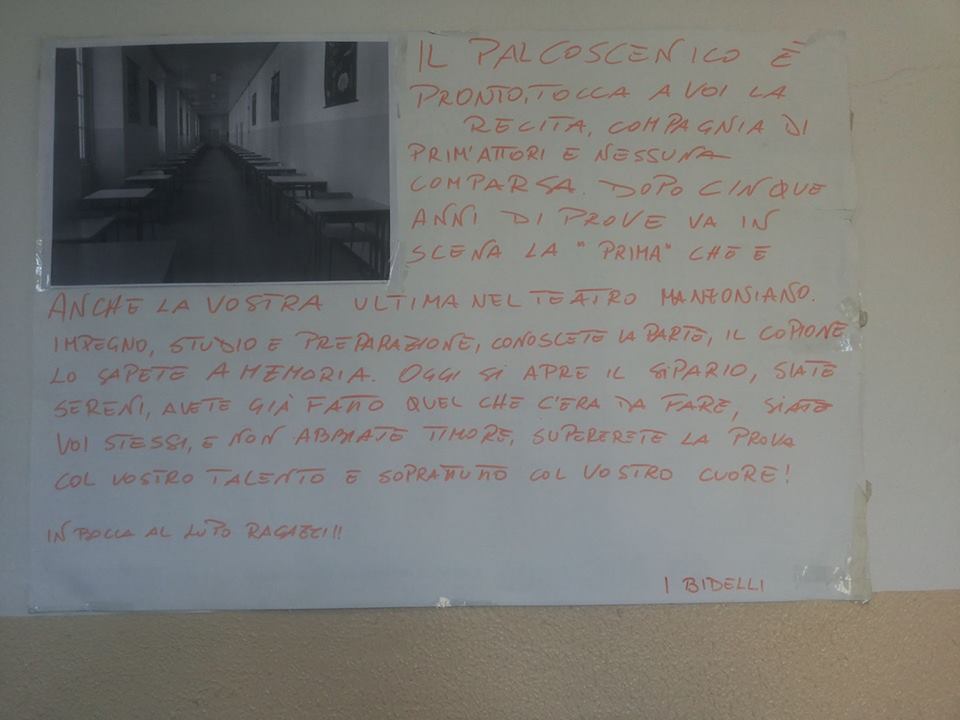 IL PALCOSCENICO È
PRONTO, TOCCA A VOI LA
RECITA, COMPAGNIA DI
PRIM'ATTORI E NESSUNA
COMPARSA. DOPO CINQUE
ANNI DI PROVE VA IN
SCENA LA "PRIMA" CHE E
ANCHE LA VOSTRA ULTIMA NEL TEATRO MANZONIANO.
IMPEGNO, STUDIO E PREPARAZIONE, CONOSCETE LA PARTE, IL COPIONE
LO SAPETE A MEMORIA. OGGI SI APRE IL SIPARIO, SIATE
SERENI, AVETE GIÀ FATTO QUEL CHE C'ERA DA FARE, SIATE
VOI STESSI, E NON ABBIATE TIMORE, SUPERERETE LA PROVA
COL VOSTRO TALENTO E SOPRATTUTTO COL VOSTRO CUORE!
IN BOCCA AL LUPO RAGAZZI!!
I BIDELLI